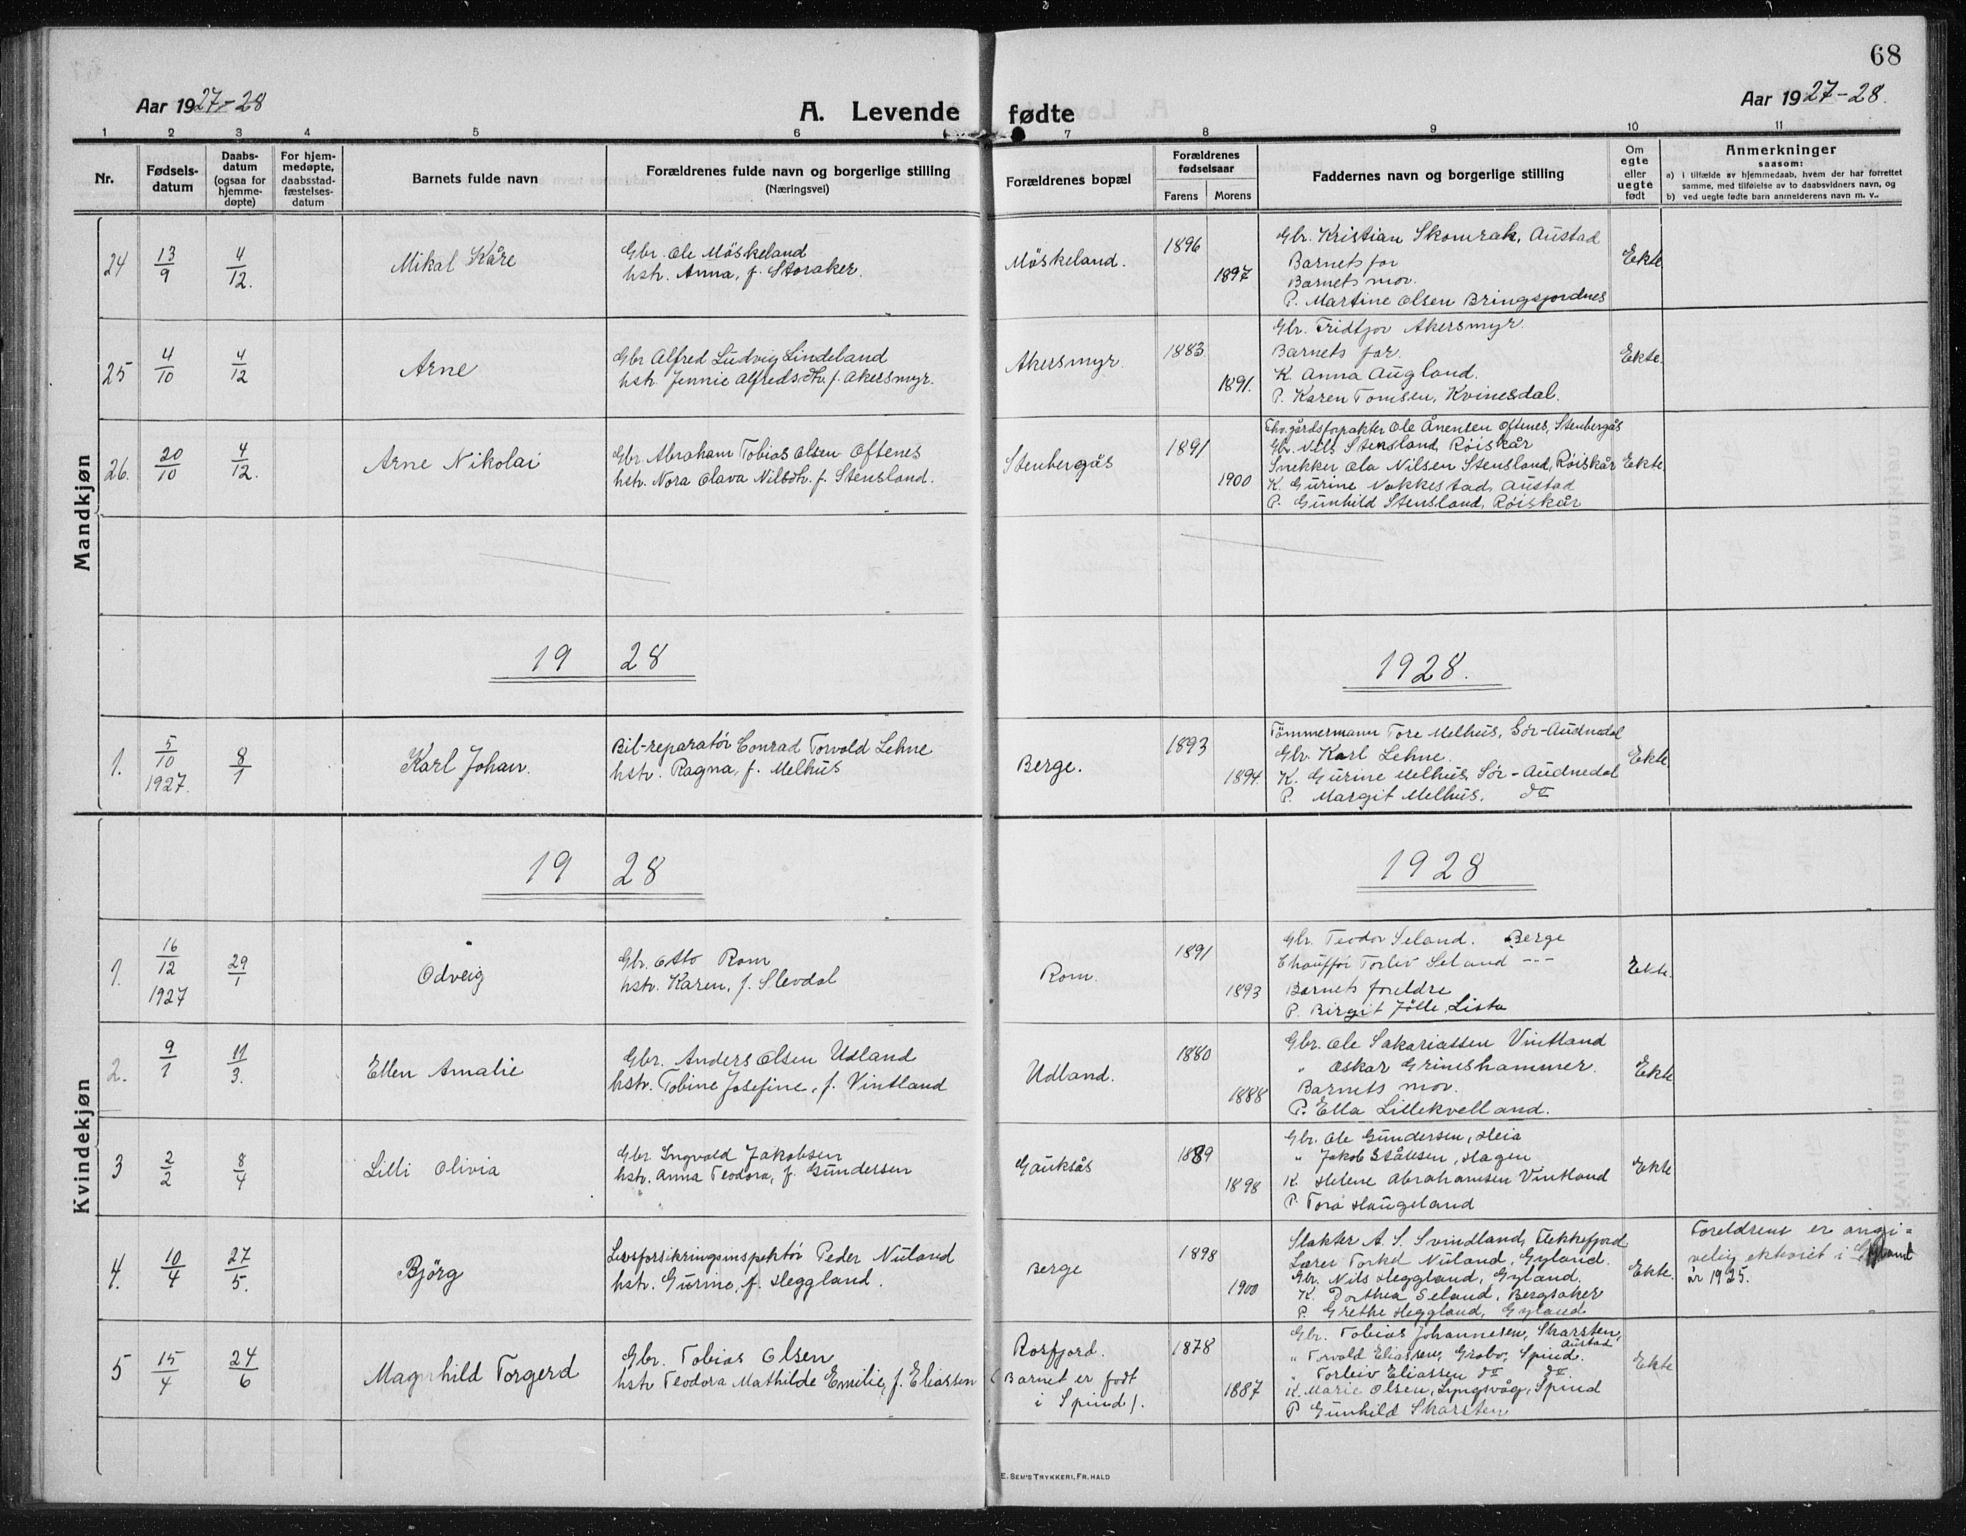 68
Aar 1927-28
A. Levende fødte
Aar 1927-28.
1 2 3 4 5 6 7 8 9 10 11
Nr.
Fødsels-
datum
Daabs-
datum
(ogsaa for
hjemme-
døpte)
For hjem-
medøpte,
daabsstad-
fæstelses-
datum
Barnets fulde navn
Forældrenes fulde navn og borgerlige stilling
(Næringsvei)
Forældrenes bopæl
Forældrenes
fødselsaar
Farens Morens
Faddernes navn og borgerlige stilling
Om
egte
eller
uegte
født
Anmerkninger
saasom:
a) i tilfælde av hjemmedaab, hvem der har forrettet
samme, med tilføielse av to daabsvidners navn, og
b) ved uegte fødte barn anmelderens navn m. v..
Mandkjøn
24 13/9 4/12. Mikal Kåre
Gbr. Ole Möskeland
hstr. Anna, f. Storaker.
Möskeland. 1896 1897
Gbr. Kristian Skomrak, Austad
Barnets far
Barnets mor.
P. Martine Olsen Bringsjordnes
Ekte
25 4/10 4/12 Arne
Gbr Alfred Ludvig Lindeland
hstr. Jennie Alfredsdtr. f. Akersmyr.
Akersmyr. 1883. 1891.
Gbr. Fridtjov Akersmyr.
Barnets far.
K. Anna Augland.
P. Karen Tomsen, Kvinesdal.
Ekte.
26. 20/10 4/12. Arne Nikolai
Gbr Abraham Tobias Olsen Oftenes
hstr. Nora Olava Nilsdtr. f. Stensland.
Stenbergås 1891 1900
Fhv. gårdsforpakter Ole Ånensen Oftenes, Stenbergås
Gbr. Nils Stensland, Röiskår
Snekker Ola Nilsen Stensland, Röiskår
K. Gurine Nakkestad, Austad
P. Gunhild Stensland, Röiskår
Ekte.
19 28
1928.
1. 5/10 1927. 8/1 Karl Johan.
Bil-reparatör Conrad Torvald Lehne
hstr. Ragna, f. Melhus
Berge. 1893 1894.
Tömmermann Tore Melhus, Sör-Audnedal
Gbr. Karl Lehne.
K. Gurine Melhus, Sör-Audnedal
P. Margit Melhus. do
Ekte
Kvindekjøn
19 28
1928
1. 16/12 1927 29/1 Odveig
Gbr. Otto Rom
hstr. Karen, f. Slevdal
Rom. 1891 1893
Gbr. Teodor Seland. Berge
Chaufför Torlev Seland ---
Barnets foreldre
P. Birgit Jölle, Lista
Ekte.
2. 9/1 11/3. Ellen Amalie
Gbr. Anders Olsen Udland
hstr. Tobine Josefine, f. Vintland
Udland. 1880 1888
Gbr. Ole Sakariassen Vintland
" Oskar Grimshammer.
Barnets mor.
P. Ella Lillekvelland.
Ekte
3 2/2 8/4 Lilli Olivia
Gbr Ingvald Jakobsen
hstr. Anna Teodora, f. Gundersen
Gauksås 1889 1898
Gbr. Ole Gundersen, Heia
" Jakob Ståltsen, Hagen
K. Helene Abrahamsen Vintland
P. Tora Haugeland
Ekte
4. 10/4 27/5. Björg
Livsforsikringsinspektör Peder Nuland
hstr. Gurine, f. Heggland.
Berge 1898 1900
Slakter A. S. Svindland, Flekkefjord
Lærer Torkel Nuland, Gyland.
Gbr. Nils Heggland, Gyland.
K. Dorthea Seland, Bergsaker
P. Grethe Heggland, Gyland
Ekte.
Foreldrene er angi=
velig ektviet i
år 1925.
5 15/4 24/6 Magnhild Torgerd
Gbr. Tobias Olsen
hstr Teodora Mathilde Emilie, f. Eliassen
Rosfjord.
(Barnet er født
i Spind).
1878 1887
Gbr. Tobias Johannesen, Skarsten, Austad
" Torvald Eliassen, Grobo, Spind.
" Torleiv Eliassen do do.
K. Marie Olsen, Lyngsvåg, Spind
P Gunhild Skarsten
Ekte
E. SEM'S TRYKKERI, FR.HALD